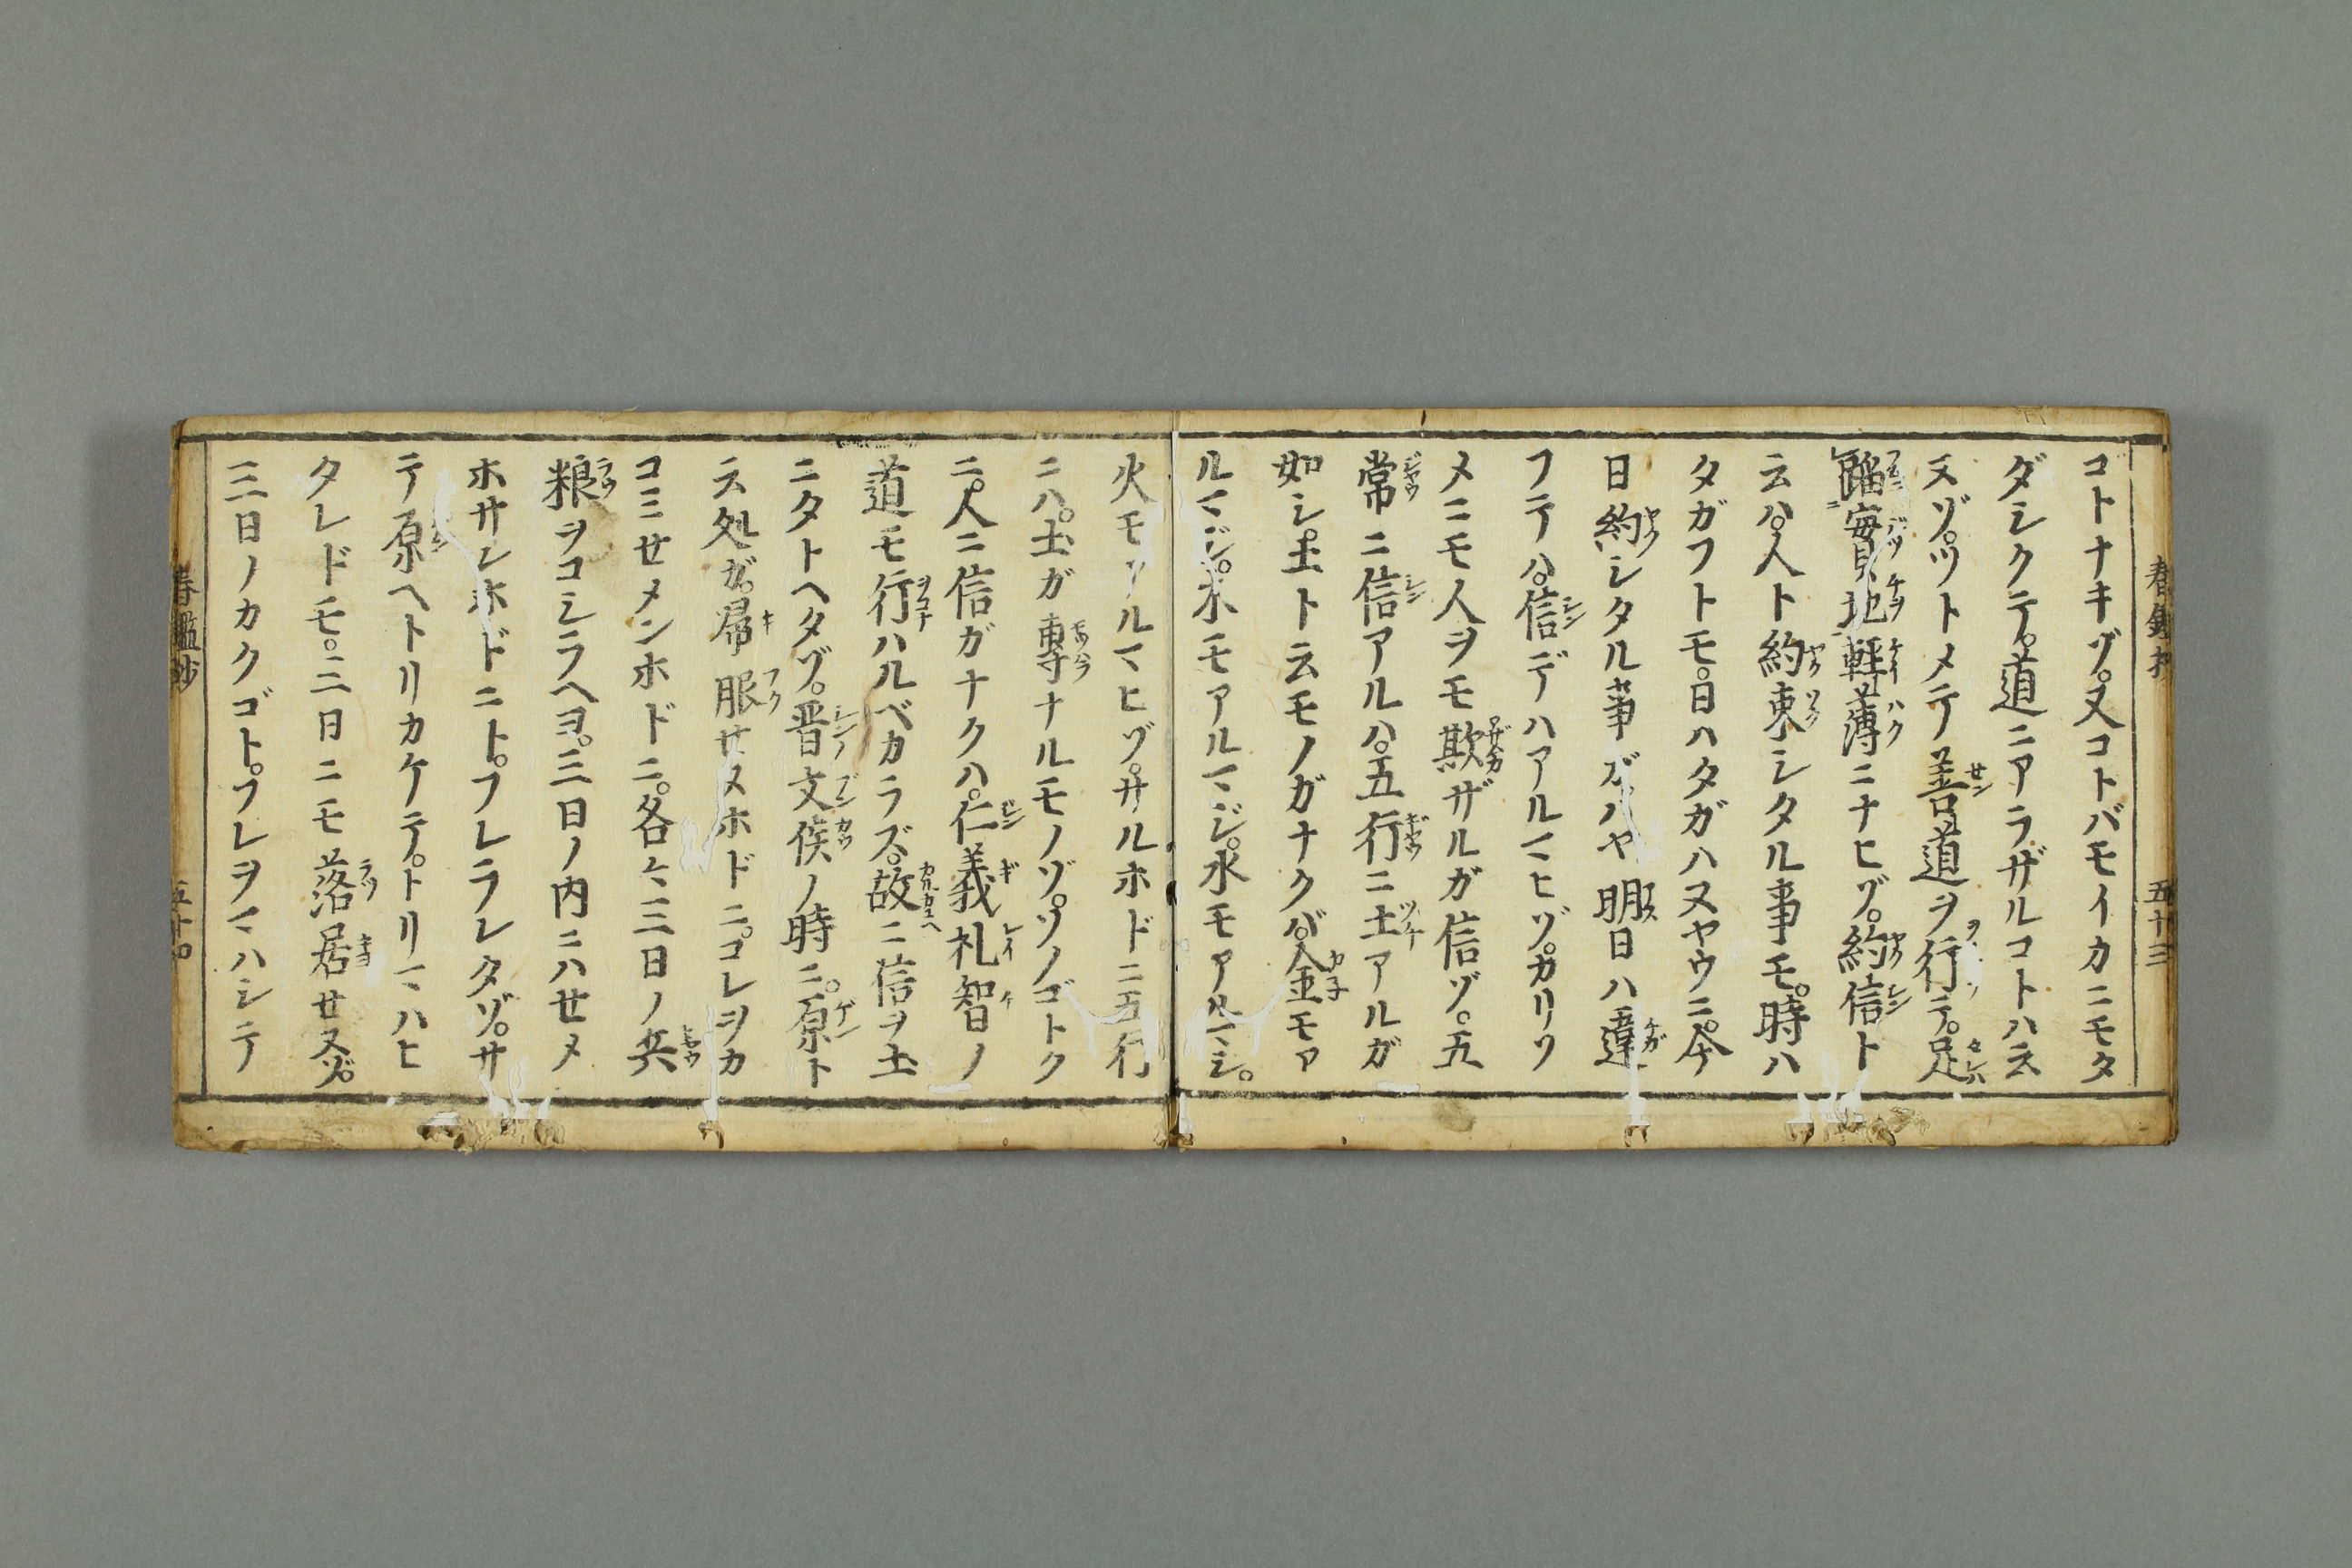 コトナキゾ。又コトバモイカニモタ
ダシクテ。道ニアラザルコトハ云
ヌゾ。ツトメテ善道ヲ行テ。足
軽薄ニナヒゾ。約信ト
云ハ。人ト約束シタル事モ。時ハ
タガフトモ。日ハタガハヌヤウニ。今
日約シタル事ガ。ハヤ明日ハ違
フテハ。信デハアルマヒゾ。カリソ
メニモ人ヲモ欺ザルガ信ゾ。五
常ニ信アルハ。五行ニ土アルガ
如シ。土ト云モノガナクバ。金モア
ルマジ。木モアルマジ。水モアルマジ。
火モアルマヒゾ。サルホドニ五行
ニハ。土ガ専ナルモノゾ。ソノゴトク
ニ。人ニ信ガナクハ。仁義礼智ノ
道モ行ハルベカラズ。故ニ信ヲ土
ニタトヘタゾ。晋文侯ノ時ニ。原ト
云処ガ。帰服セヌホドニ。コレヲカ
コミセメンホドニ。各〻三日ノ兵
粮ヲコシラヘヨ。三日ノ内ニハセメ
ホサンホドニト。フレラレタゾ。サ
テ原ヘトリカケテ。トリマハヒ
タレドモ。三日ニモ落居セヌゾ。
三日ノカクゴト。フレヲマハシテ
春鑑抄
五十三